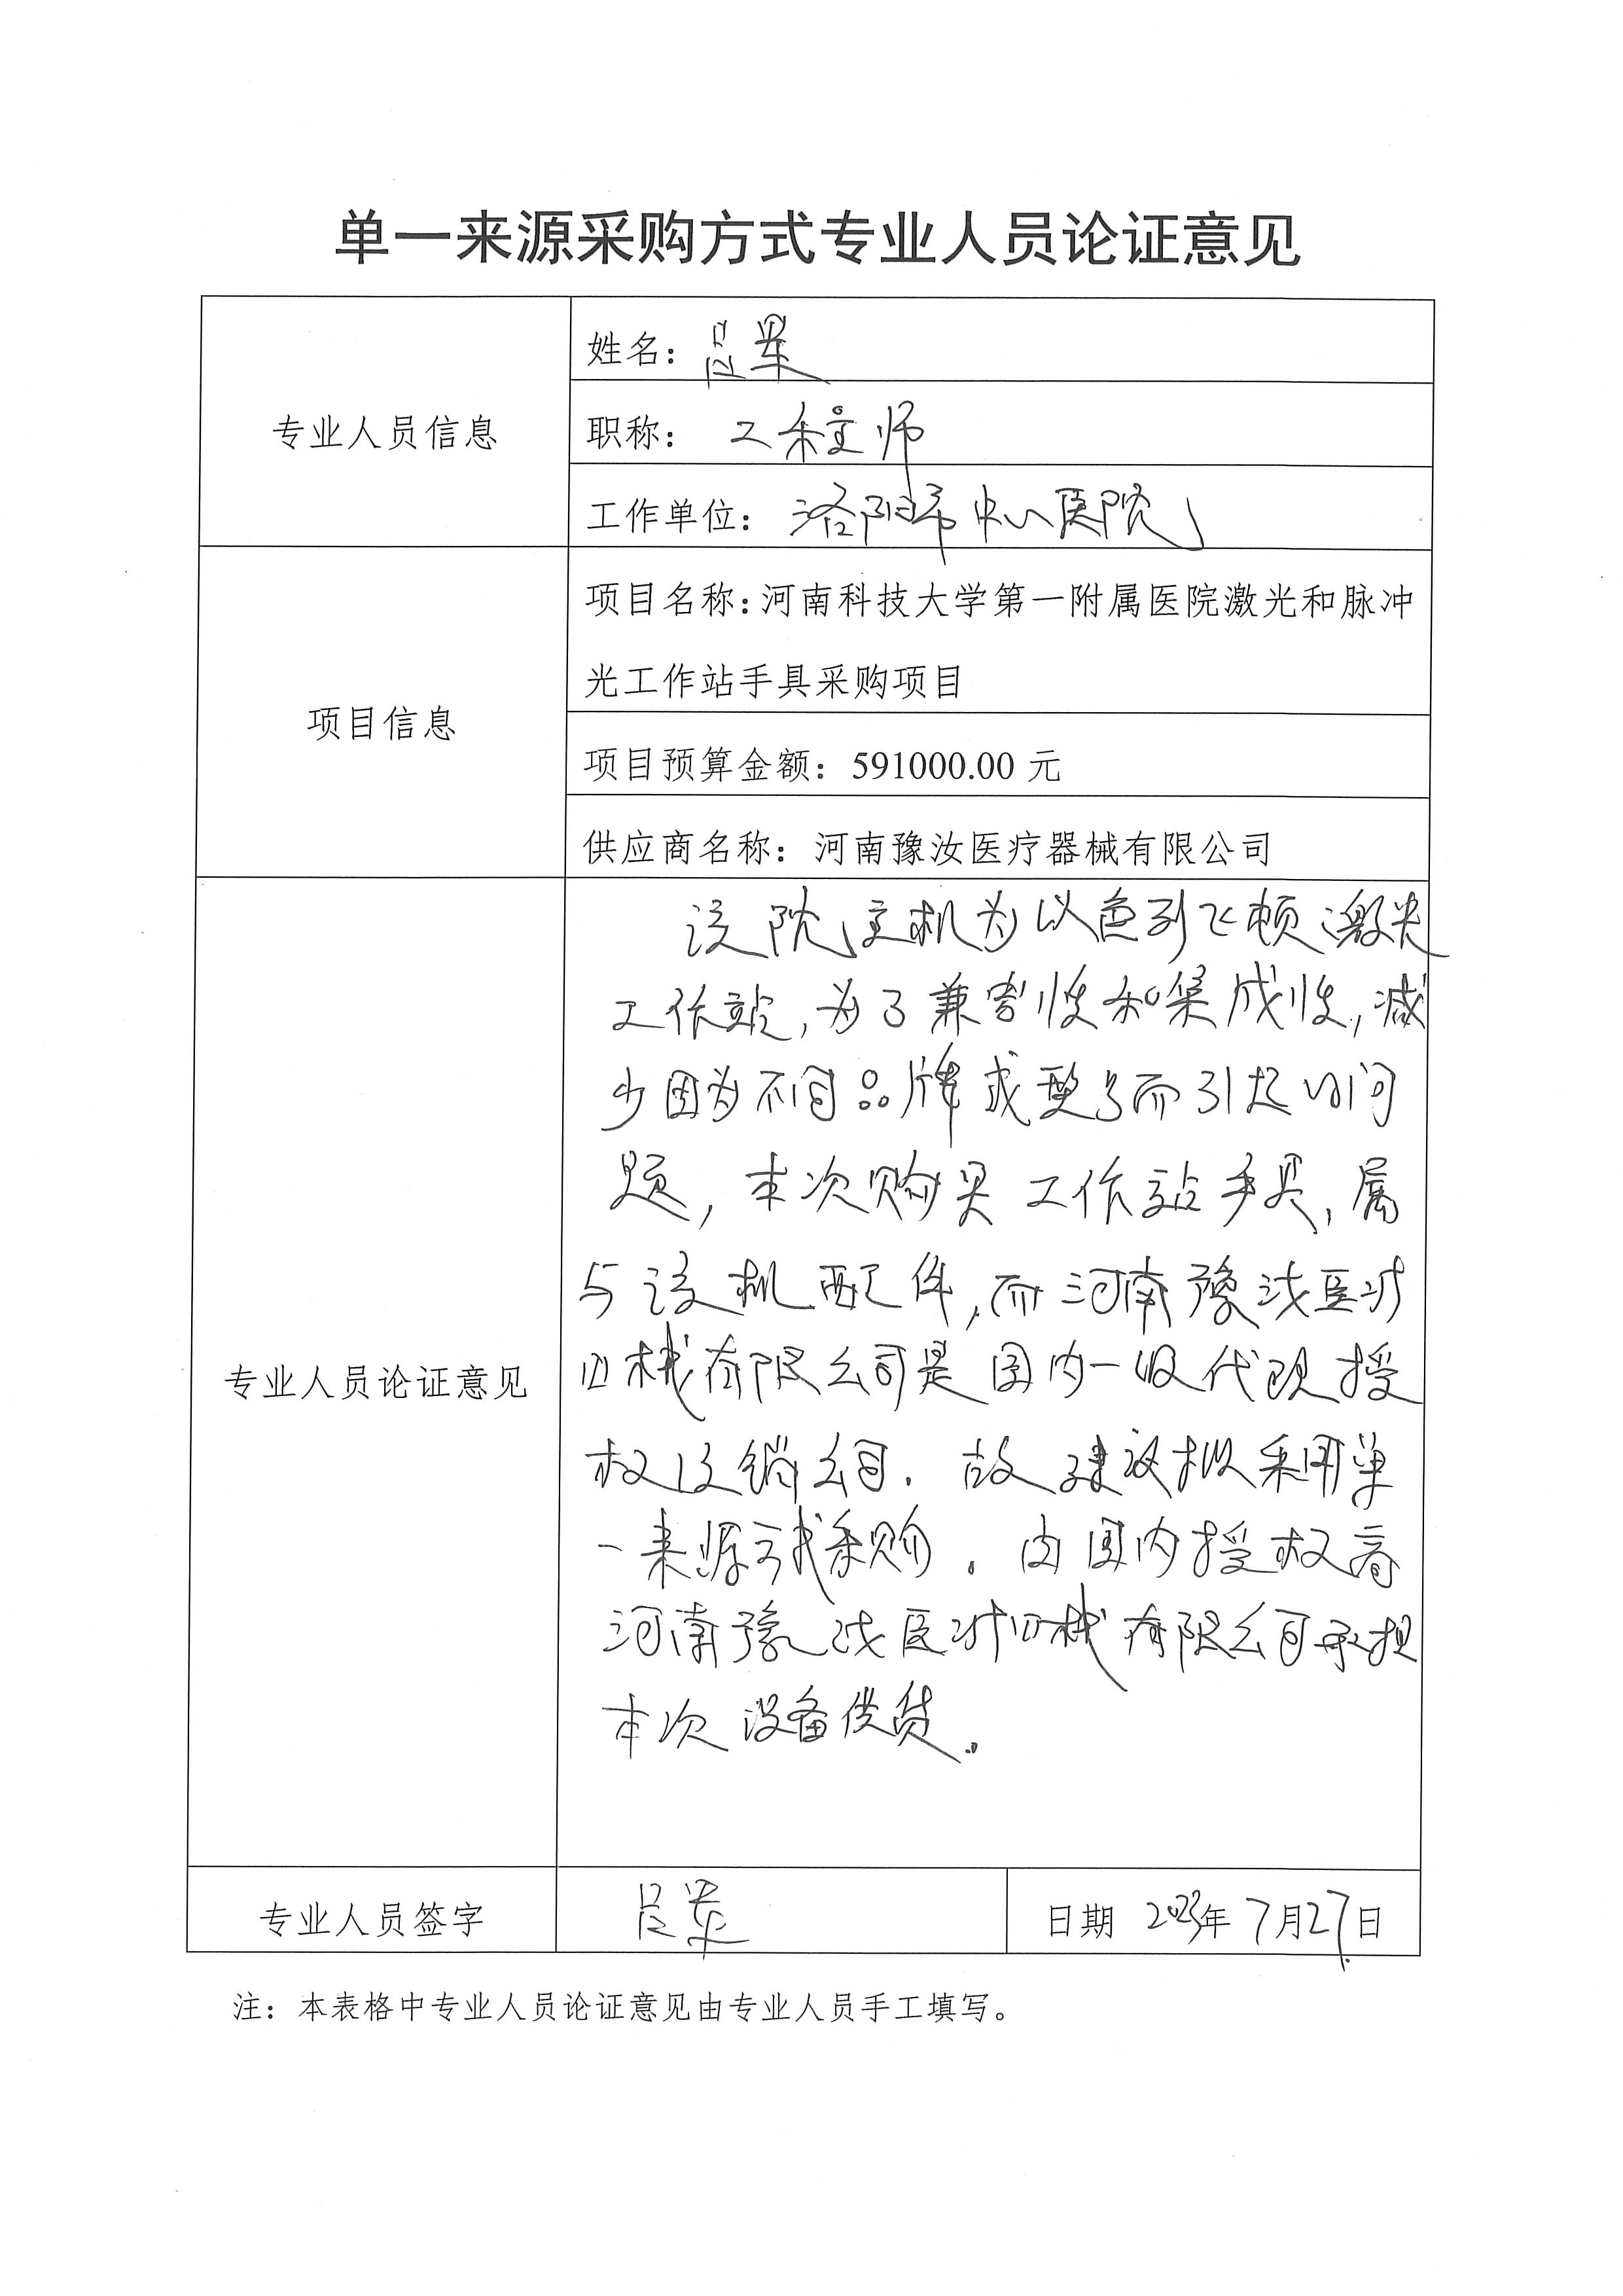 单一来源采购方式专业人员论证意见
专业人员信息
姓名：吕军
职称：工程师
工作单位：洛阳市中心医院
项目信息
项目名称：河南科技大学第一附属医院激光和脉冲
光工作站手具采购项目
项目预算金额：591000.00 元
供应商名称：河南豫汝医疗器械有限公司
专业人员论证意见
该院主机为以色列飞顿激光
工作站，为了兼容性和集成性，减
少因为不同品牌或型号而引起的问
题，本次购买工作站手具，属
与该机配件，而河南豫汝医疗
器械有限公司是国内一级代理授
权经销公司。故建议拟采用单
一来源方式采购。由国内授权商
河南豫汝医疗器械有限公司承担
本次设备供货。
专业人员签字
日期 2023年7月27日
注：本表格中专业人员论证意见由专业人员手工填写。